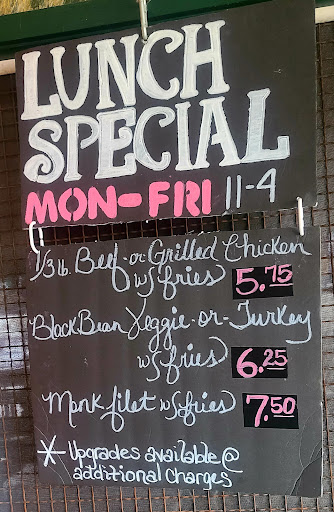 LUNCH
SPECIAL
MON-FRI 11-4
1/3 lb. Beef-or-Grilled Chicken
w/ fries 5.75
Black Bean Veggie-or-Turkey
w/ fries 6.25
Monk filet w/ fries 7.50
* Upgrades available @
additional charges